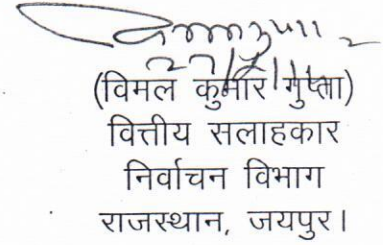 (विमल कुमार गुप्ता)
वित्तीय सलाहकार
निर्वाचन विभाग
राजस्थान, जयपुर।